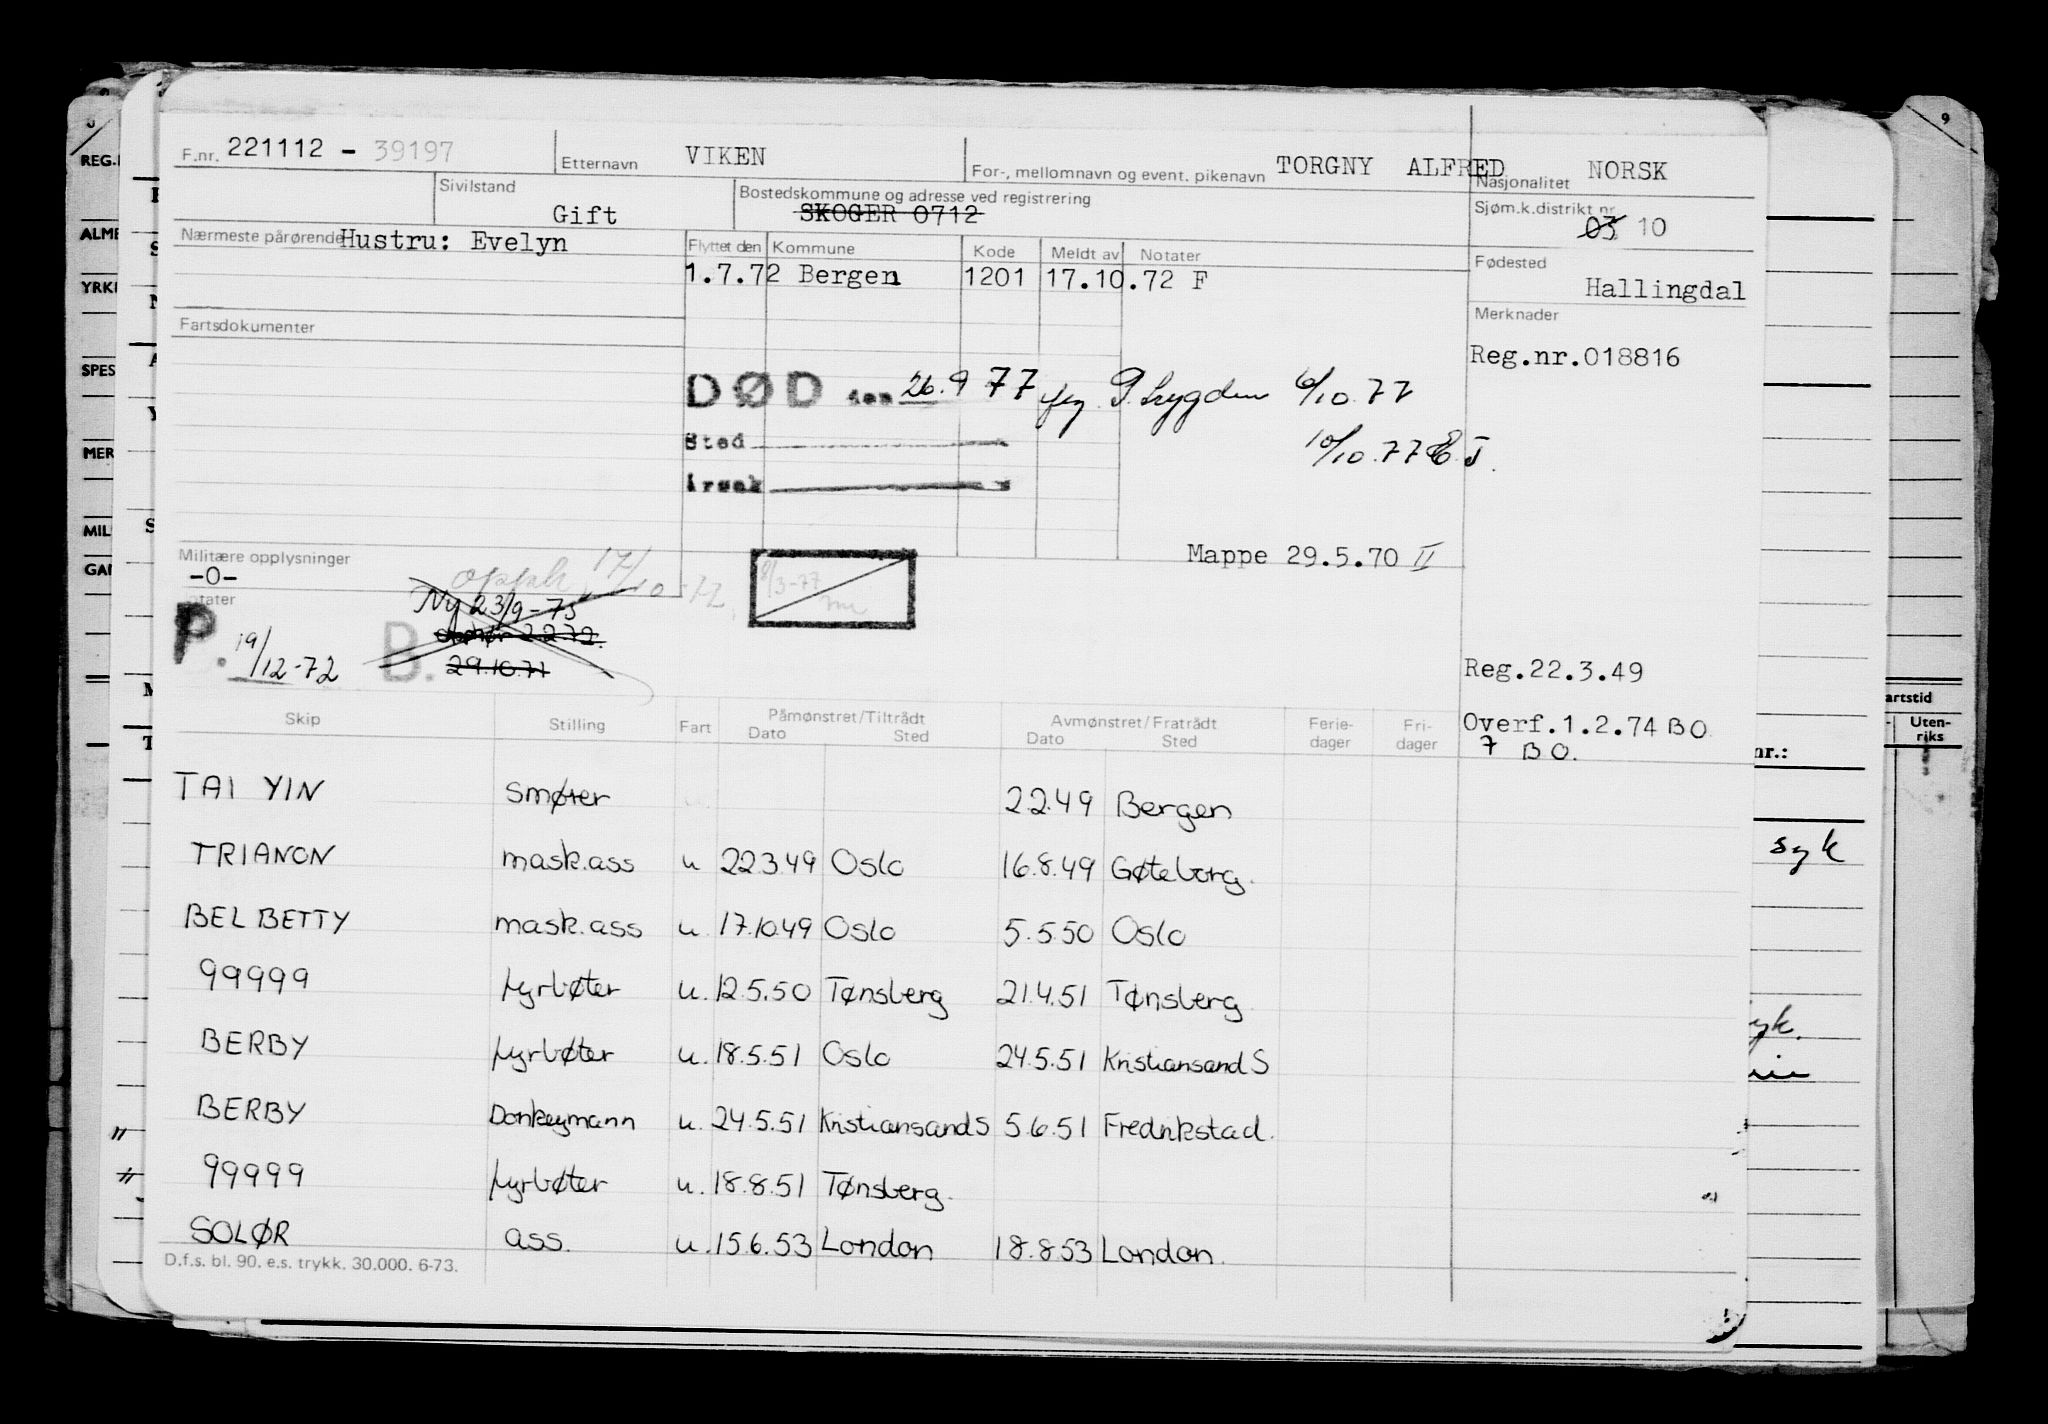 F.nr. 221112 - 39197 Etternavn VIKEN For-, mellomnavn og event. pikenavn TORGNY ALFRED Nasjonalitet NORSK
Sivilstand Gift Bostedskommune og adresse ved registrering SKOGER 0712 Sjøm.k.distrikt nr. 03 10
Nærmeste pårørende Hustru: Evelyn Flyttet den Kommune Kode Meldt av Notater Fødested
1.7.72 Bergen 1201 17.10.72 F Hallingdal
Fartsdokumenter Merknader
Reg.nr.018816
DØD den 26.9 77 6/10.77
Sted 10/10.77
Årsak
Militære opplysninger Mappe 29.5.70 II
-O-
17/10-72
8/3-77
Ny 23/9-75
P. 19/12-72 B. opphør 2.2.72.
29.10.71
Reg.22.3.49
Overf.1.2.74 BO
7 BO.
Skip Stilling Fart Påmønstret/Tiltrådt Avmønstret/Fratrådt Ferie-dager Fri-dager
Dato Sted Dato Sted
TAI YIN smører 2.2.49 Bergen
TRIANON mask.ass u 22.3.49 Oslo 16.8.49 Gøteborg.
BELBETTY mask.ass u. 17.10.49 Oslo 5.5.50 Oslo
99999 fyrbøter u. 12.5.50 Tønsberg 21.4.51 Tønsberg
BERBY fyrbøter u. 18.5.51 Oslo 24.5.51 Kristiansand S
BERBY Donkeymann u. 24.5.51 Kristiansand S 5.6.51 Fredrikstad.
99999 fyrbøter u. 18.8.51 Tønsberg.
SOLØR ass. u. 15.6.53 London 18.8.53 London.
D.f.s. bl. 90. e.s. trykk. 30.000. 6-73.
9
REG.
ALME
YRKE
SPES
MER
MIL
artstid
Uten-
riks
nr.:
syk